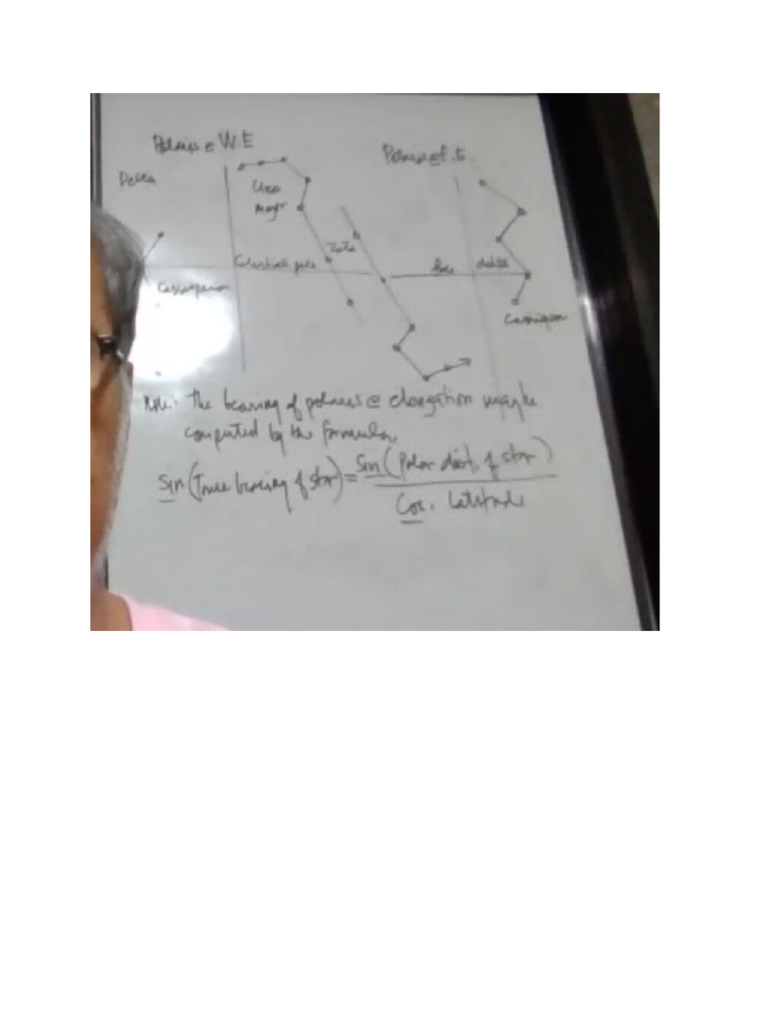 Polaris @ W.E
Polaris @ E. E.
Delta
Ursa
Major
Zeta
Celestial pole
Pole
delta
Cassiopeia
Cassiopeia
Note: The bearing of polaris @ elongation maybe
computed by the formula
Sin (True bearing of star) = Sin (Polar dist. of star)
Cos. Latitude